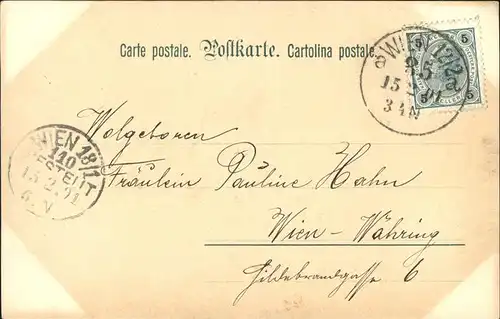 Carte postale. Postkarte. Cartolina postale.
WIEN 12/2
a a
15
3-4 N
5 5
WIEN 18/1
110
BESTELLT
6. N
Wolgeboren
Fräulein Pauline Hahn
Wien - Währing
Hildebrandgasse 6